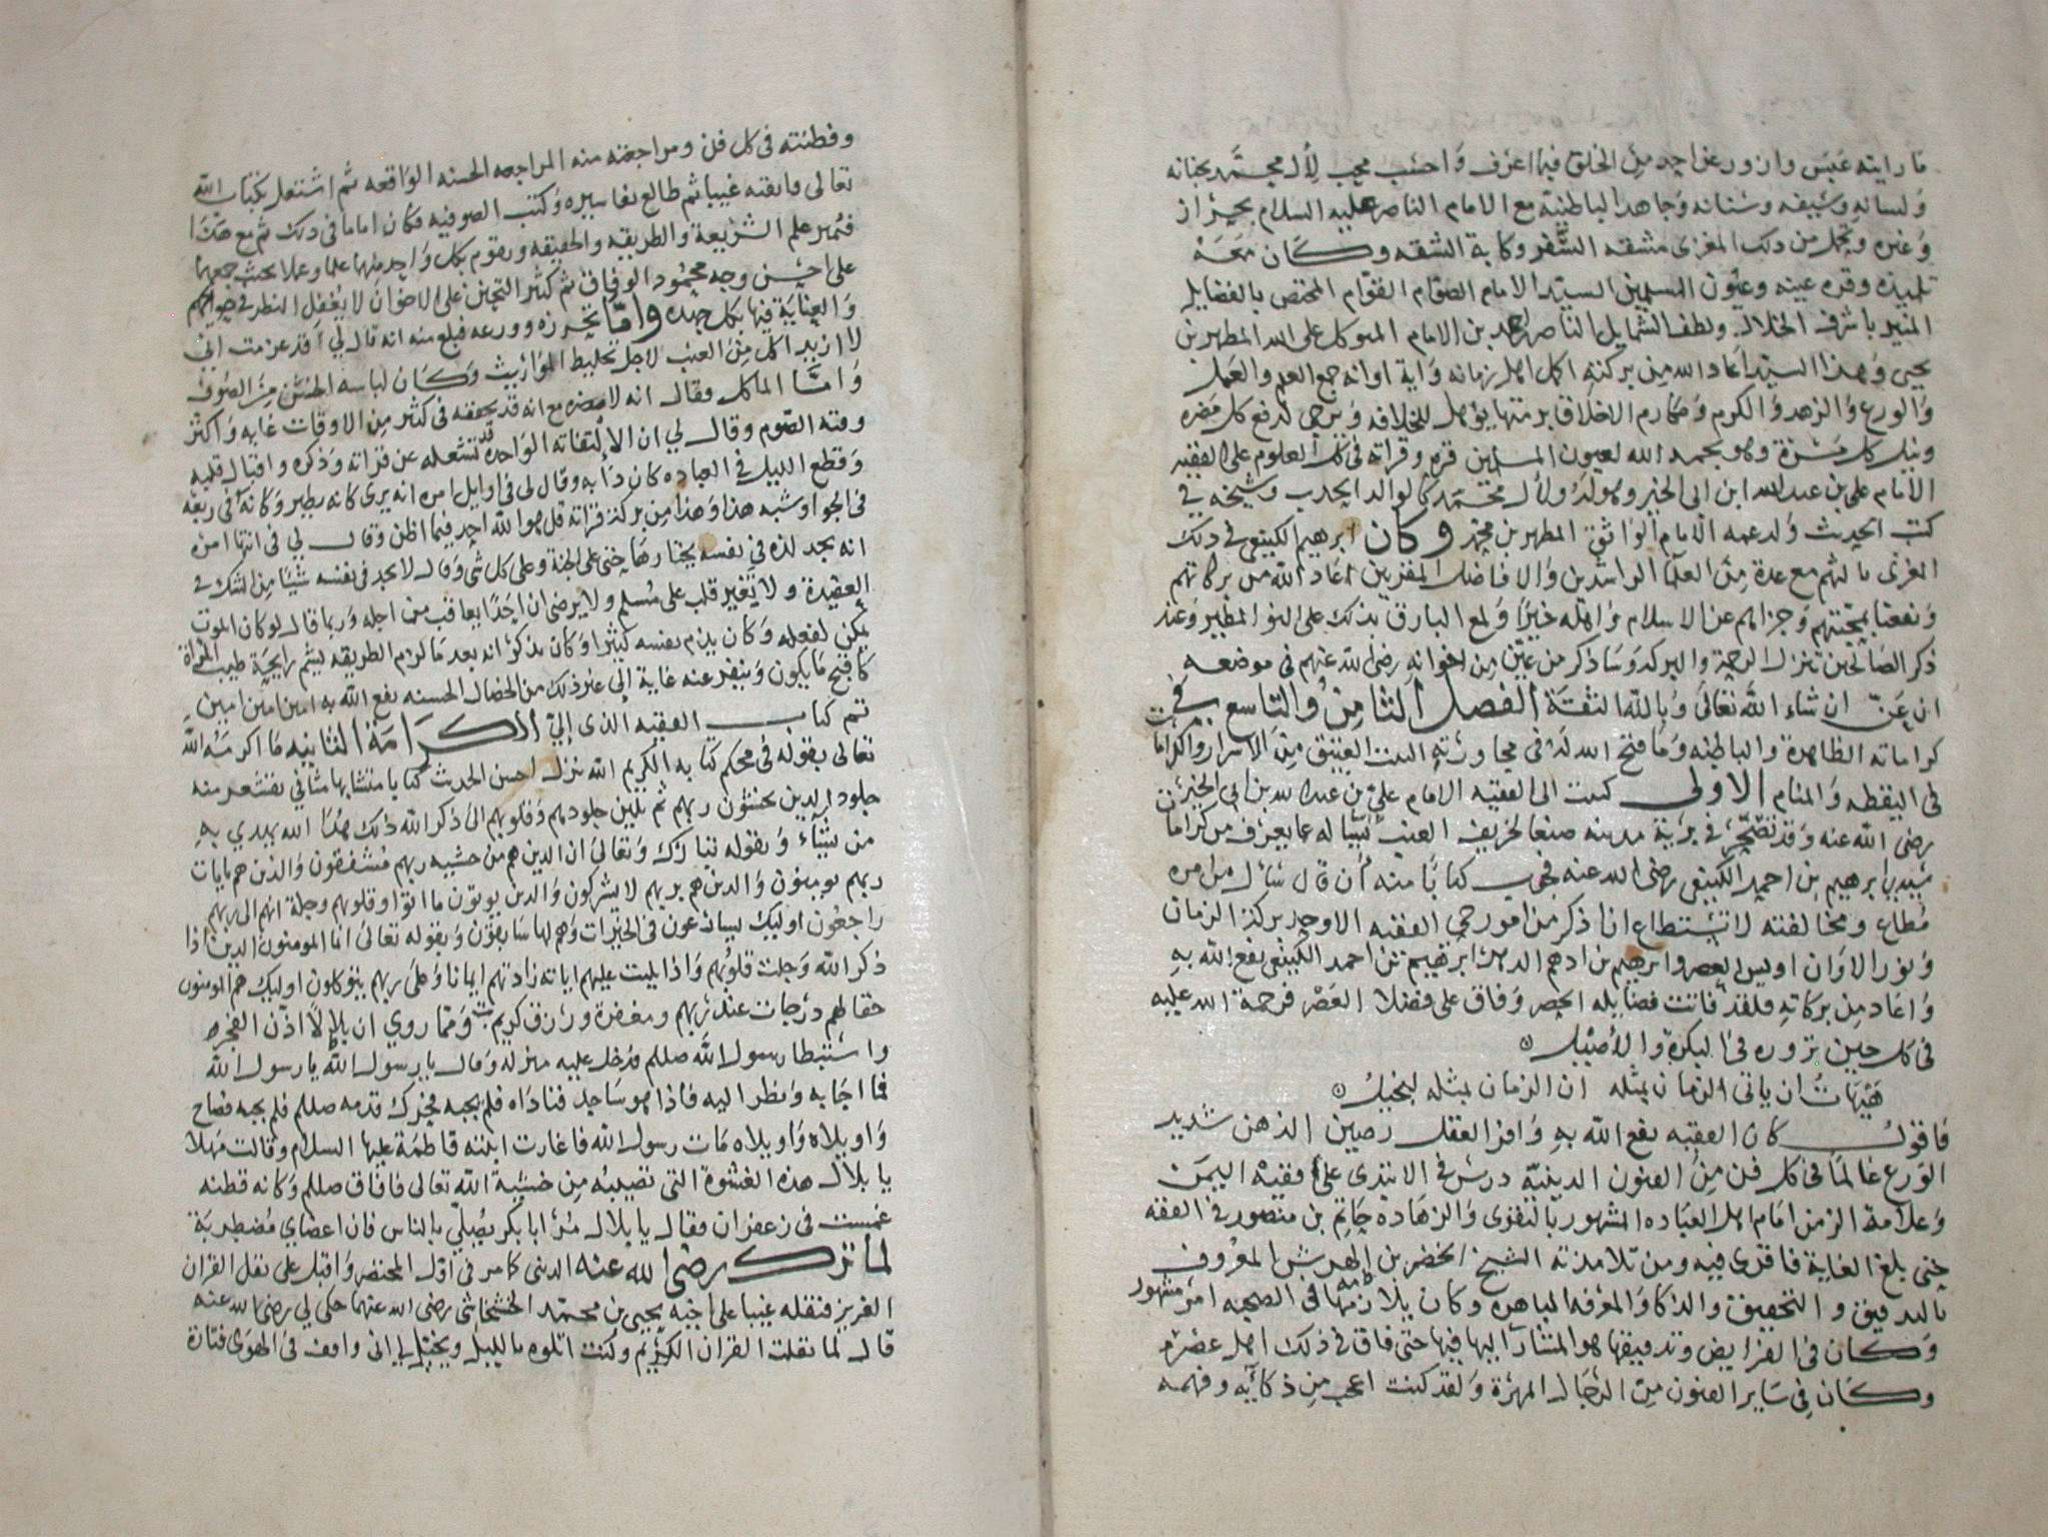 ما رايته عبس وازور عن احد من الخلق فيما اعرف واحسب محب لأل محمد بجنانه
ولسانه وسيفه وسنانه وجاهد الباطنية مع الامام الناصر عليه السلام بحراز
وغيره وتحمل من ذلك المغزى مشقه السفر وكابة الشقه وكان معه
تلميذه وقره عينه وعيون المسلمين السيد الامام الصوام القوام المختص بالفضايل
المنير باشرف الخلال ولطف الشمايل الناصر احمد بن الامام المتوكل على الله المطهر بن
يحيى وهذا السيد اعاد الله من بركته اكمل اهل زمانه واية اوانه جمع العلم والعمل
والورع والزهد والكرم ومكارم الاخلاق برمتها يؤهل للخلافه ويرجى لدفع كل مضره
ونيل كل مسرة وهو بحمد الله لعيون المسلمين قره وقراته في كل العلوم على الفقيه
الامام علي بن عبد الله ابن ابي الخير وهو له ولأل محمد كالوالد الحدب وشيخه في
كتب الحديث ولد عمه الامام الواثق المطهر بن محمد وكان ابرهيم الكينعي في ذلك
المغزى بالثهم مع عدة من العلما الراشدين والافاضل المقربين اعاد الله من بركاتهم
ونفعنا بمحبتهم وجزاهم عن الاسلام واهله خيرا ولمع البارق بذلك على النو المطير وعند
ذكر الصالحين تنزل الرحمة والبركه وساذكر من عين من اخوانه رضي الله عنهم في موضعه
ان عن ان شاء الله تعالى وبالله الثقة الفصل الثامن والتاسع في
كراماته الظاهرة والباطنه وما فتح الله له في مجاورته البيت العتيق من الاسرار والكرامات
في اليقظه والمنام الاولى كتبت الى الفقيه الامام علي بن عبدالله بن ابي الخير
رضي الله عنه وقد في برية مدينه صنعا لخريف العنب كتابا له عما يعرف من كرامات
سيدي ابرهيم بن احمد الكينعي رضي الله عنه فجوب كتابا منه أن قال سأل من امره
مطاع ومخالفته لا تستطاع ان اذكر من امور حي الفقيه الاوحد بركة الزمان
ونور الاوان اويس العصر وابرهيم بن ادهم الدهر ابرهيم بن احمد الكينعي نفع الله به
واعاد من بركاته فلقد فاتت فضايله الحصر وفاق على فضلا العصر فرحمة الله عليه
في كل حين تزوره في البكرة والأصيل
هيهات ان ياتي الزمان بمثله ان الزمان بمثله لبخيل
فاقول كان الفقيه نفع الله به وافر العقل رصين الذهن شديد
الورع عالما في كل فن من الفنون الدينيه درس في الابتدى على فقيه اليمن
وعلامة الزمن امام اهل العباده المشهور بالتقوى والزهاده حاتم بن منصور في الفقه
حتى بلغ الغاية فاقرى فيه ومن تلامذته الشيخ الخضر بن الهرش المعروف
بالتدقيق والتحقيق والذكا والمعرفه الباهره وكان تلازمهما في الصحبه امر مشهور
وكان في الفرايض وتدقيقها هو المشار اليه فيها حتى فاق في ذلك اهل عصره
وكان في ساير الفنون من الرجال المهرة ولقد كنت اعجب من ذكائه وفهمه
وفطنته في كل فن ومراجعته منه المراجعه الحسنه الواقعه ثم اشتغل بكتاب الله
تعالى وانقنه غيبا ثم طالع تفاسيره وكتب الصوفيه فكان اماما في ذلك ثم مع هذا
فثمر علم الشريعة والطريقه والحقيقه ويقوم بكل واحد منهما علما وعملا بحيث جمعهما
على احسن وجه محمود الوفاق ثم كثير التحنن على الاخوان لا يغفل النظر في حوايجهم
والعناية فيها بكل جهده واما تحرزه وورعه فبلغ منه انه قال لي قد عزمت اني
لا ازيد اكل من العنب لاجل تخليط المواريث وكان لباسه الخشن من الصوف
واما الماكل وقال انه لا يضره مع انه قد يحققه في كثير من الاوقات غايه واكثر
وقته الصوم وقال لي ان الالتفاته الواحدة تشغله عن قراته وذكره واقبال قلبه
وقطع الليل في العباده كان دابه وقال لي في اوايل امره انه يرى كانه يطير وكانه في ربعه
في الجو او شبه هذا وهذا من بركة قراته قل هو الله احد فيما اظن وقال لي في انتها امره
انه يجد لذه في نفسه يختارها حتى على الجنة وعلى كل شي وقال لا يجد في نفسه شيا من الشك في
العقيدة ولا تغير قلب على مسلم ولا يرضى ان احدا يعاقب من اجله وربما قال لو كان الموت
يمكن لفعله وكان يلزم نفسه كثيرا وكان يذكر انه بعد ما لزم الطريقه يشم رايحة طيب المراة
كاقبح ما يكون وينفر عنه غاية الى غير ذلك من الخصال الحسنه نفع الله به امين امين امين
تم كتاب الفقيه الذي الي الكرامة الثانيه ما اكرمه الله
تعالى بقوله في محكم كتابه الكريم الله نزل احسن الحديث كتابا متشابها مثاني تقشعر منه
جلود الذين يخشون ربهم ثم تلين جلودهم وقلوبهم الى ذكر الله ذلك هدى الله يهدي به
من يشاء وبقوله تبارك وتعالى ان الذين هم من خشيه ربهم مشفقون والذين هم بايات
ربهم يومنون والذين هم بربهم لا يشركون والذين يوتون ما اتوا وقلوبهم وجلة انهم الى ربهم
راجعون اوليك يسارعون في الخيرات وهم لها سابقون وبقوله تعالى انما المومنون الذين اذا
ذكر الله وجلت قلوبهم واذا تليت عليهم اياته زادتهم ايمانا وعلى ربهم يتوكلون اوليك هم المومنون
حقا لهم درجات عند ربهم ومغفرة ورزق كريم ومما روي ان بلالا اذن الفجر
واستبطا رسول الله صللم فدخل عليه منزله وقال يا رسول الله يا رسول الله
فما اجابه ونظر اليه فاذا هو ساجد فناداه فلم يجبه فحرك قدمه صللم فلم يجبه فصاح
واويلاه واويلاه مات رسول الله فاغارت ابنته فاطمة عليها السلام وقالت مهلا
يا بلال هذه الغشوة التي تصيبه من خشية الله تعالى فافاق صللم وكانه قطنه
غمست في زعفران فقال يا بلال مر ابا بكر يصلي بالناس فان اعضاي مضطربة
لما ترك رضي الله عنه الدنيا كما مر في اول المختصر واقبل على نقل القران
العزيز فنقله غيبا على اخيه يحيى بن محمد الخشخاشي رضي الله عنهما حكى لي رضي الله عنه
قال لما نقلت القران الكريم وكنت اتلوه بالليل ويخيل لي اني واقف في الهوى فتارة